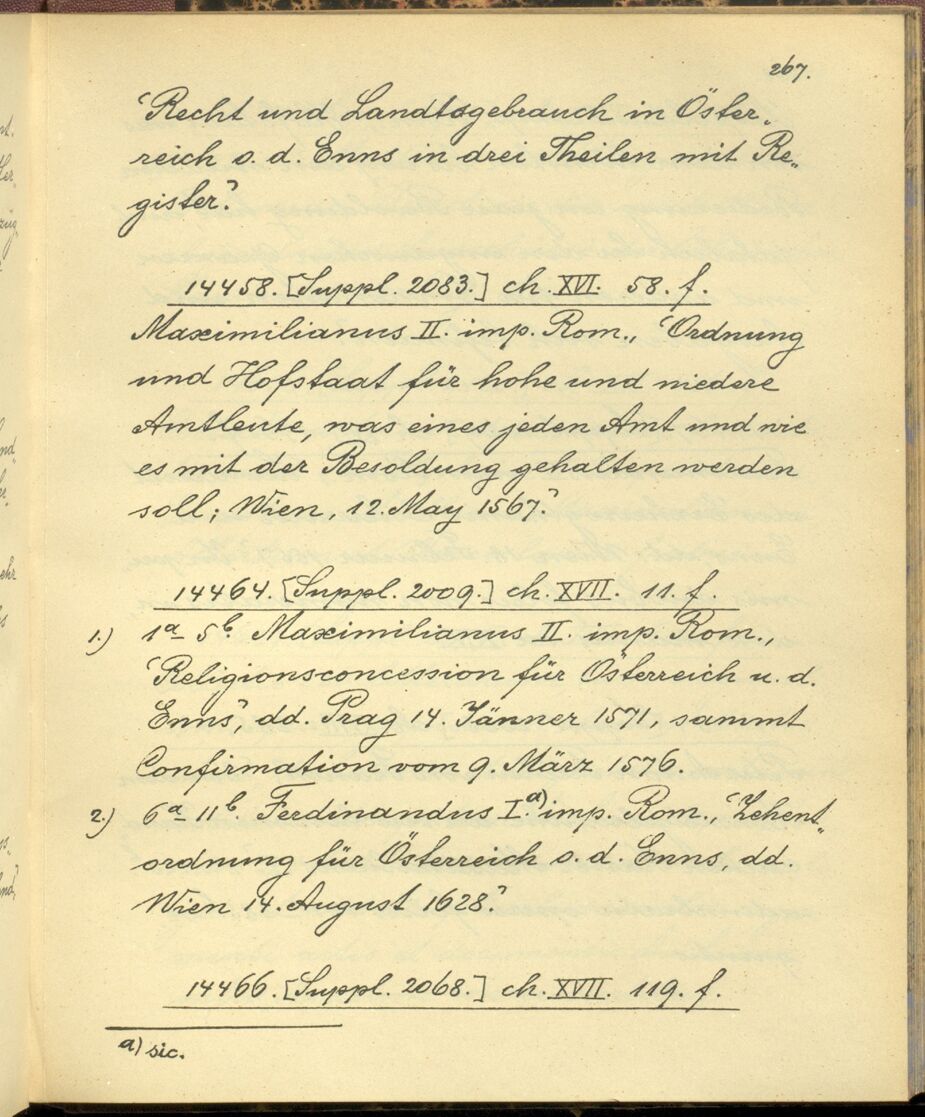 267.
‘Recht und Landtsgebrauch in Öster„
reich o. d. Enns in drei Theilen mit Re„
gister.’
14458. [Suppl. 2083.] ch. XVI. 58. f.
Maximilianus II. imp. Rom., ‘Ordnung
und Hofstaat für hohe und niedere
Amtleute, was eines jeden Amt und wie
es mit der Besoldung gehalten werden
soll; Wien, 12. May 1567.’
14464. [Suppl. 2009.] ch. XVII. 11. f.
1.) 1a- 5b. Maximilianus II. imp. Rom.,
‘Religionsconcession für Österreich u. d.
Enns’, dd. Prag 14. Jänner 1571, sammt
Confirmation vom 9. März 1576.
2.) 6a- 11b. Ferdinandus I.a) imp. Rom., ‘Zehent„
ordnung für Österreich o. d. Enns, dd.
Wien 14. August 1628.’
14466. [Suppl. 2068.] ch. XVII. 119. f.
a) sic.